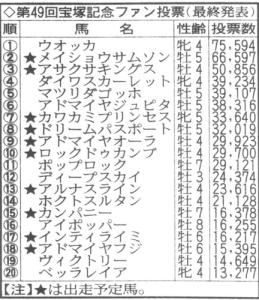 ◇第49回宝塚記念ファン投票(最終発表)
順 馬名 性齢 投票数
① ウオッカ 牝4 75,594
②★メイショウサムソン 牡5 66,597
③★アサクサキングス 牡4 50,856
④ ダイワスカーレット 牝4 39,234
⑤ マツリダゴッホ 牡5 39,107
⑥ アドマイヤジュピタ 牡5 38,316
⑦★カワカミプリンセス 牝5 33,640
⑧★ドリームパスポート 牡5 32,019
⑨★アドマイヤオーラ 牡4 29,923
⑩★ロックドゥカンブ 牡4 29,700
⑪ ポップロック 牡7 29,112
⑫ ディープスカイ 牡3 24,374
⑬★アルナスライン 牡4 23,616
⑭ ホクトスルタン 牡4 21,128
⑮★カンパニー 牡7 16,378
⑯ アインポッパー 牡8 16,255
⑰★インティライミ 牡6 16,217
⑱★アドマイヤフジ 牡6 15,395
⑲ ヴィクトリー 牡4 14,649
⑳ ベッラレイア 牝4 13,277
【注】★は出走予定馬。